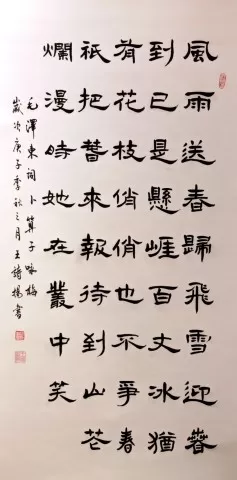 風雨送春歸飛雪迎春
到已是懸崖百丈冰猶
有花枝俏俏也不爭春
祇把春來報待到山花
爛漫時她在叢中笑
毛澤東詞卜算子咏梅
歲次庚子季秋之月王詩揚書